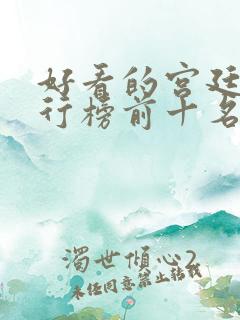 好看的宫廷
行榜前十名
浊世倾心2
未经同意禁止转载